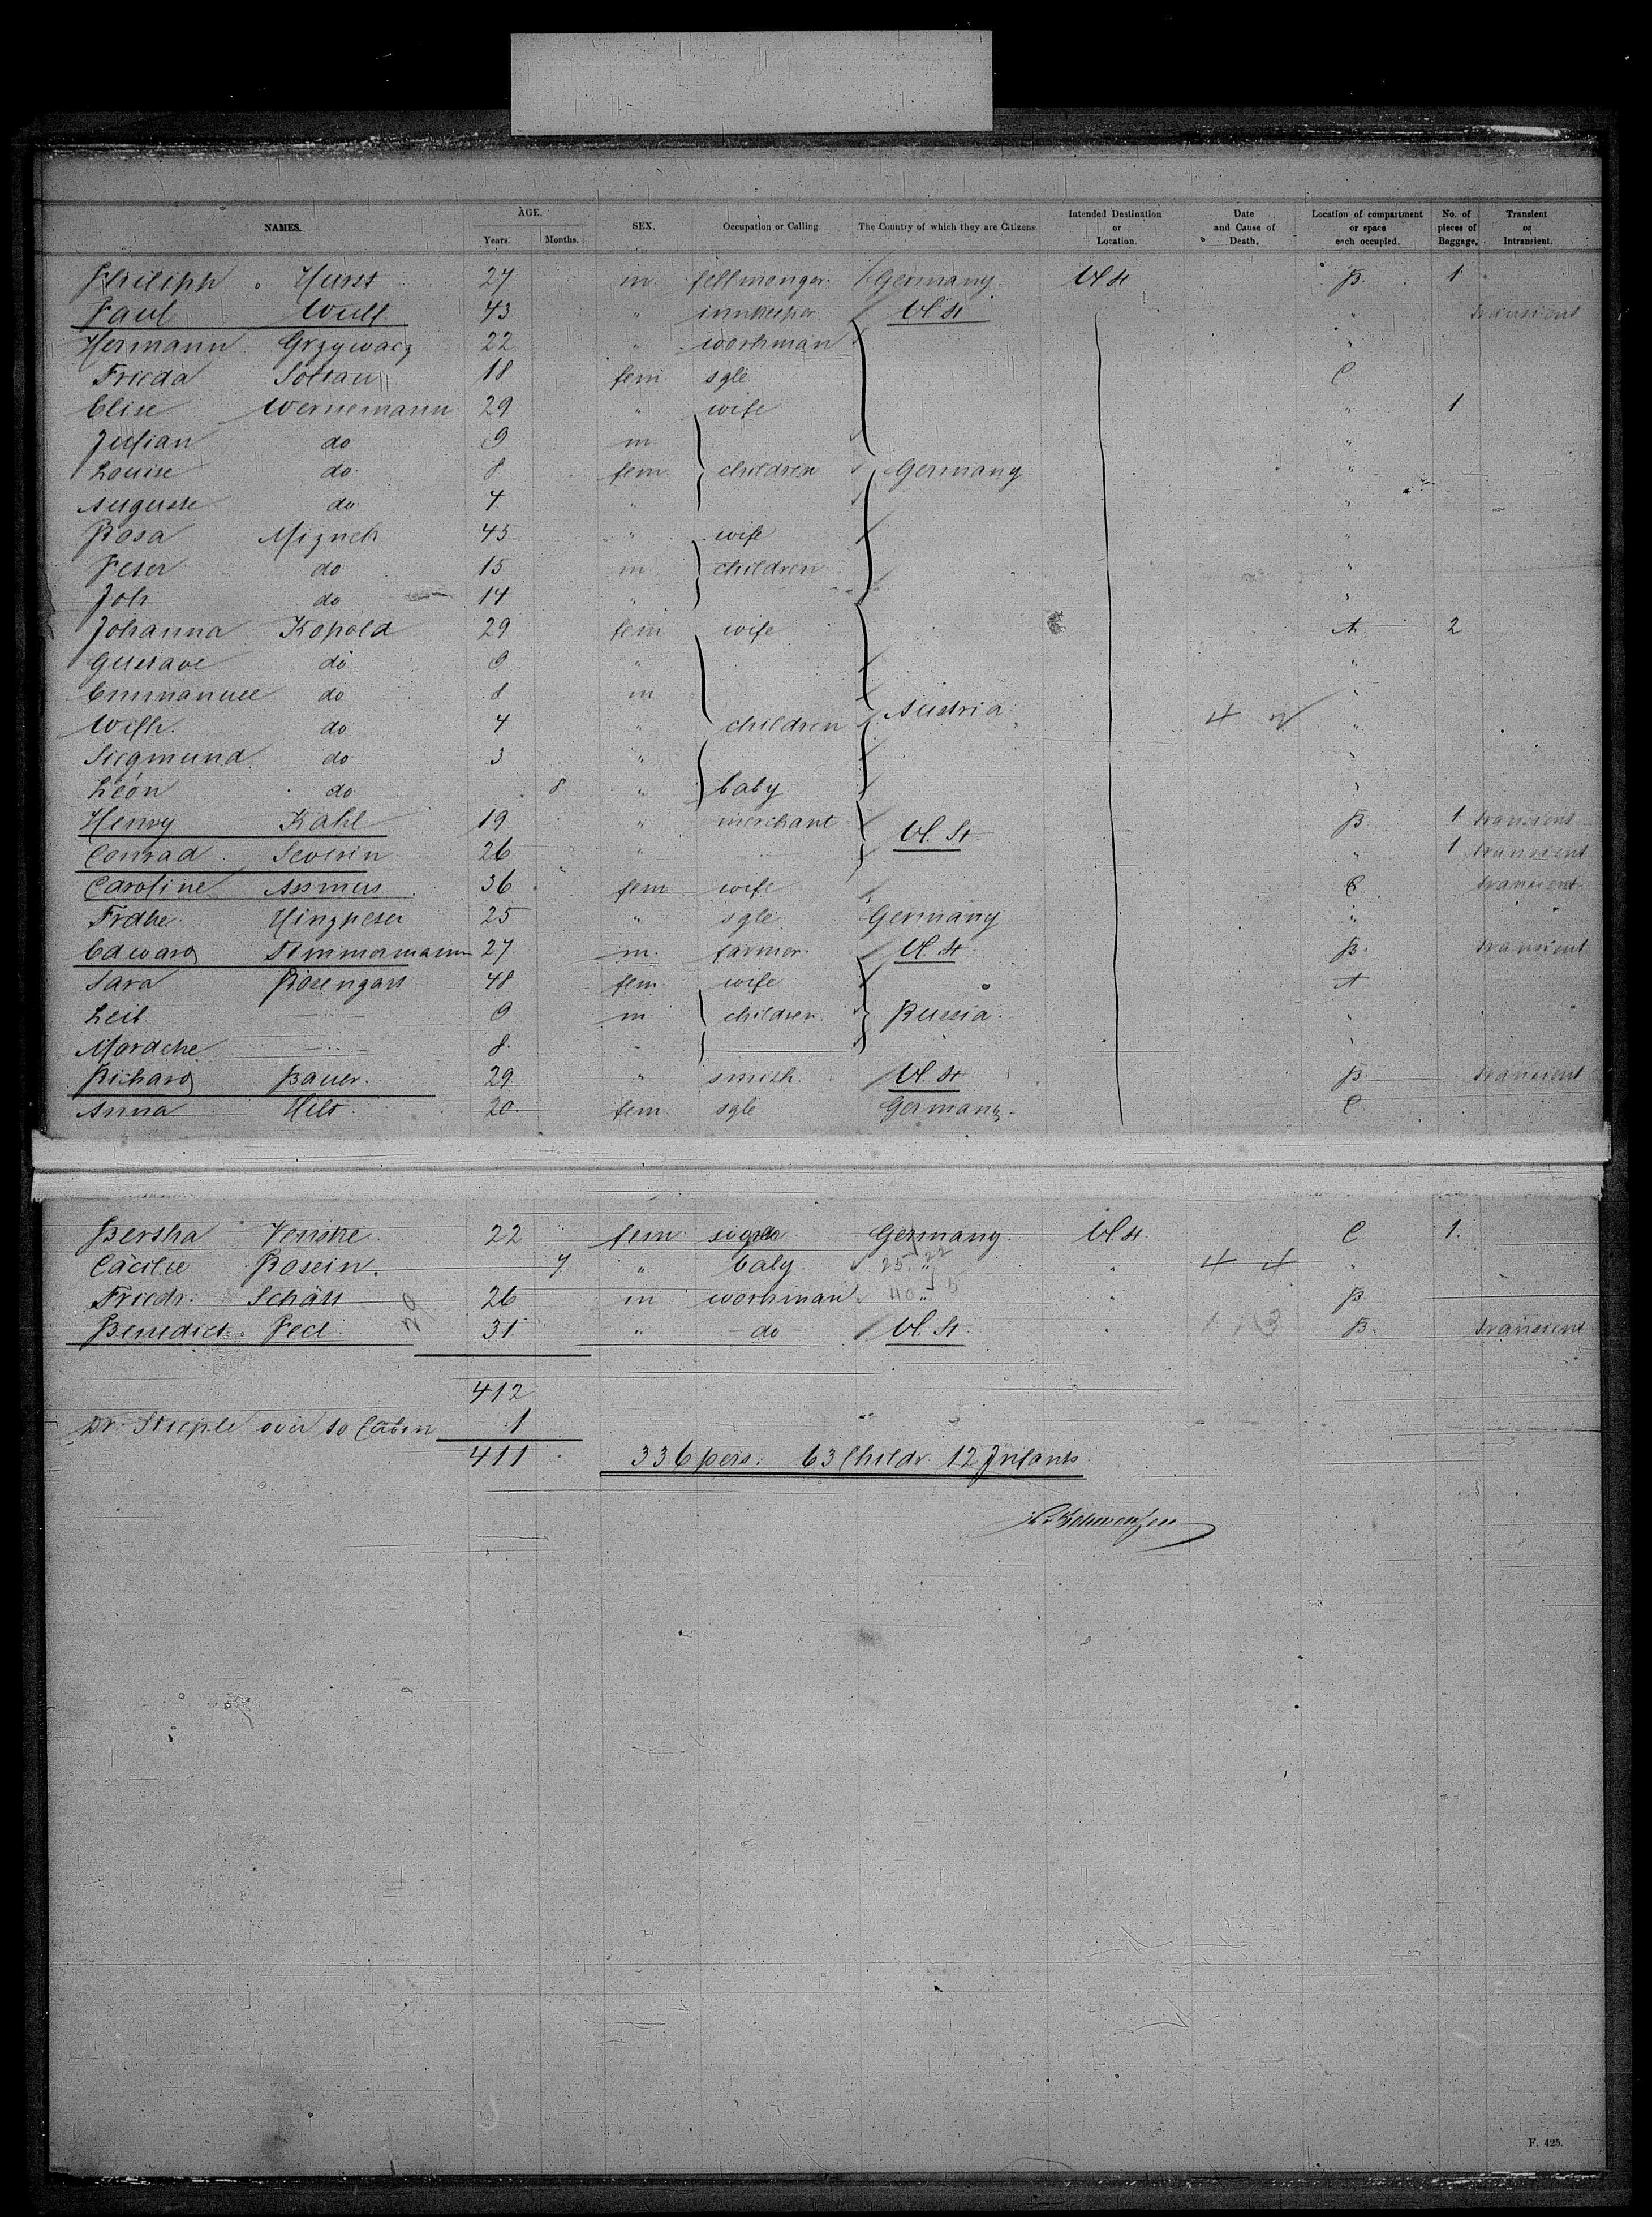 NAMES. AGE. Years. Months. SEX. Occupation or Calling The Country of which they are Citizens. Intended Destination or Location. Date and Cause of Death. Location of compartment or space each occupied. No. of pieces of Baggage. Transient or Intransient.
Philiph Hurst 27 m fellmonger Germany U.St B. 1
Paul Wulf 43 " innkeeper U.St " transient
Hermann Grzywacz 22 " workman "
Frieda Soltau 18 fem sgle C
Elise Wernemann 29 " wife " 1
Julian do 9 m "
Louise do 8 fem children Germany "
Auguste do 4 " "
Rosa 45 " wife "
Peter do 15 m children "
Joh do 14 " "
Johanna Kopold 29 fem wife A 2
Gustave do 9 " "
Emmanuel do 8 m "
Wilh. do 4 " children Austria 4 "
Siegmund do 3 " "
Léon do 8 " baby "
Henry Kahl 19 " merchant U.St B 1 transient
Conrad Severin 26 " " 1 transient
Caroline Assmus 36 fem wife C transient
Hingpeter 25 " sgle Germany "
Edward Timmermann 27 m. farmer U.St B. transient
Sara Rosengart 48 fem wife A
Leib 9 m children Russia "
Mordche 8. "
Richard Bauer. 29 " smith U.St B transient
Anna Hilt 20. fem sgle Germany. C
Bertha Venske 22 fem Germany U.St C 1.
Cäcilie Rosein. 7 " baby " " 4 4 "
Friedr. 26 m workman " " B
Benedict 31 " do U.St " B. transient
412
Dr. Steeple over to Cabin 1
411 336 pers. 63 Childr. 12 Infants
F. 425.